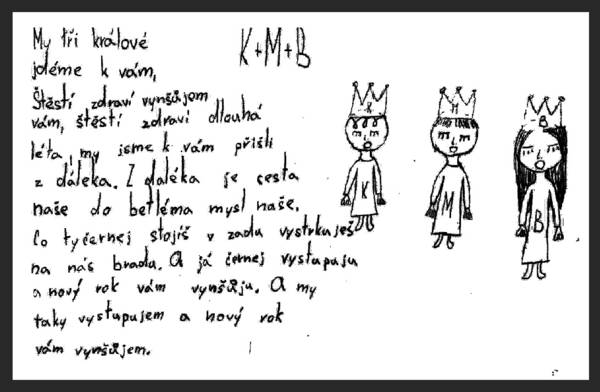 My tři králové
K+M+B
jdeme k vám,
Štěstí zdraví vynšůjem
vám, štěstí zdraví dlouhá
léta, my jsme k vám přišli
z dáleka. Z daléka je cesta
naše do betléma mysl naše.
Co tyčernej stojíš v zadu vystrkuješ
na nás bradu. A já černej vystupuju
a nový rok vám vynšůju. A my
taky vystupujem a nový rok
vám vynšůjem.
K M B
K M B